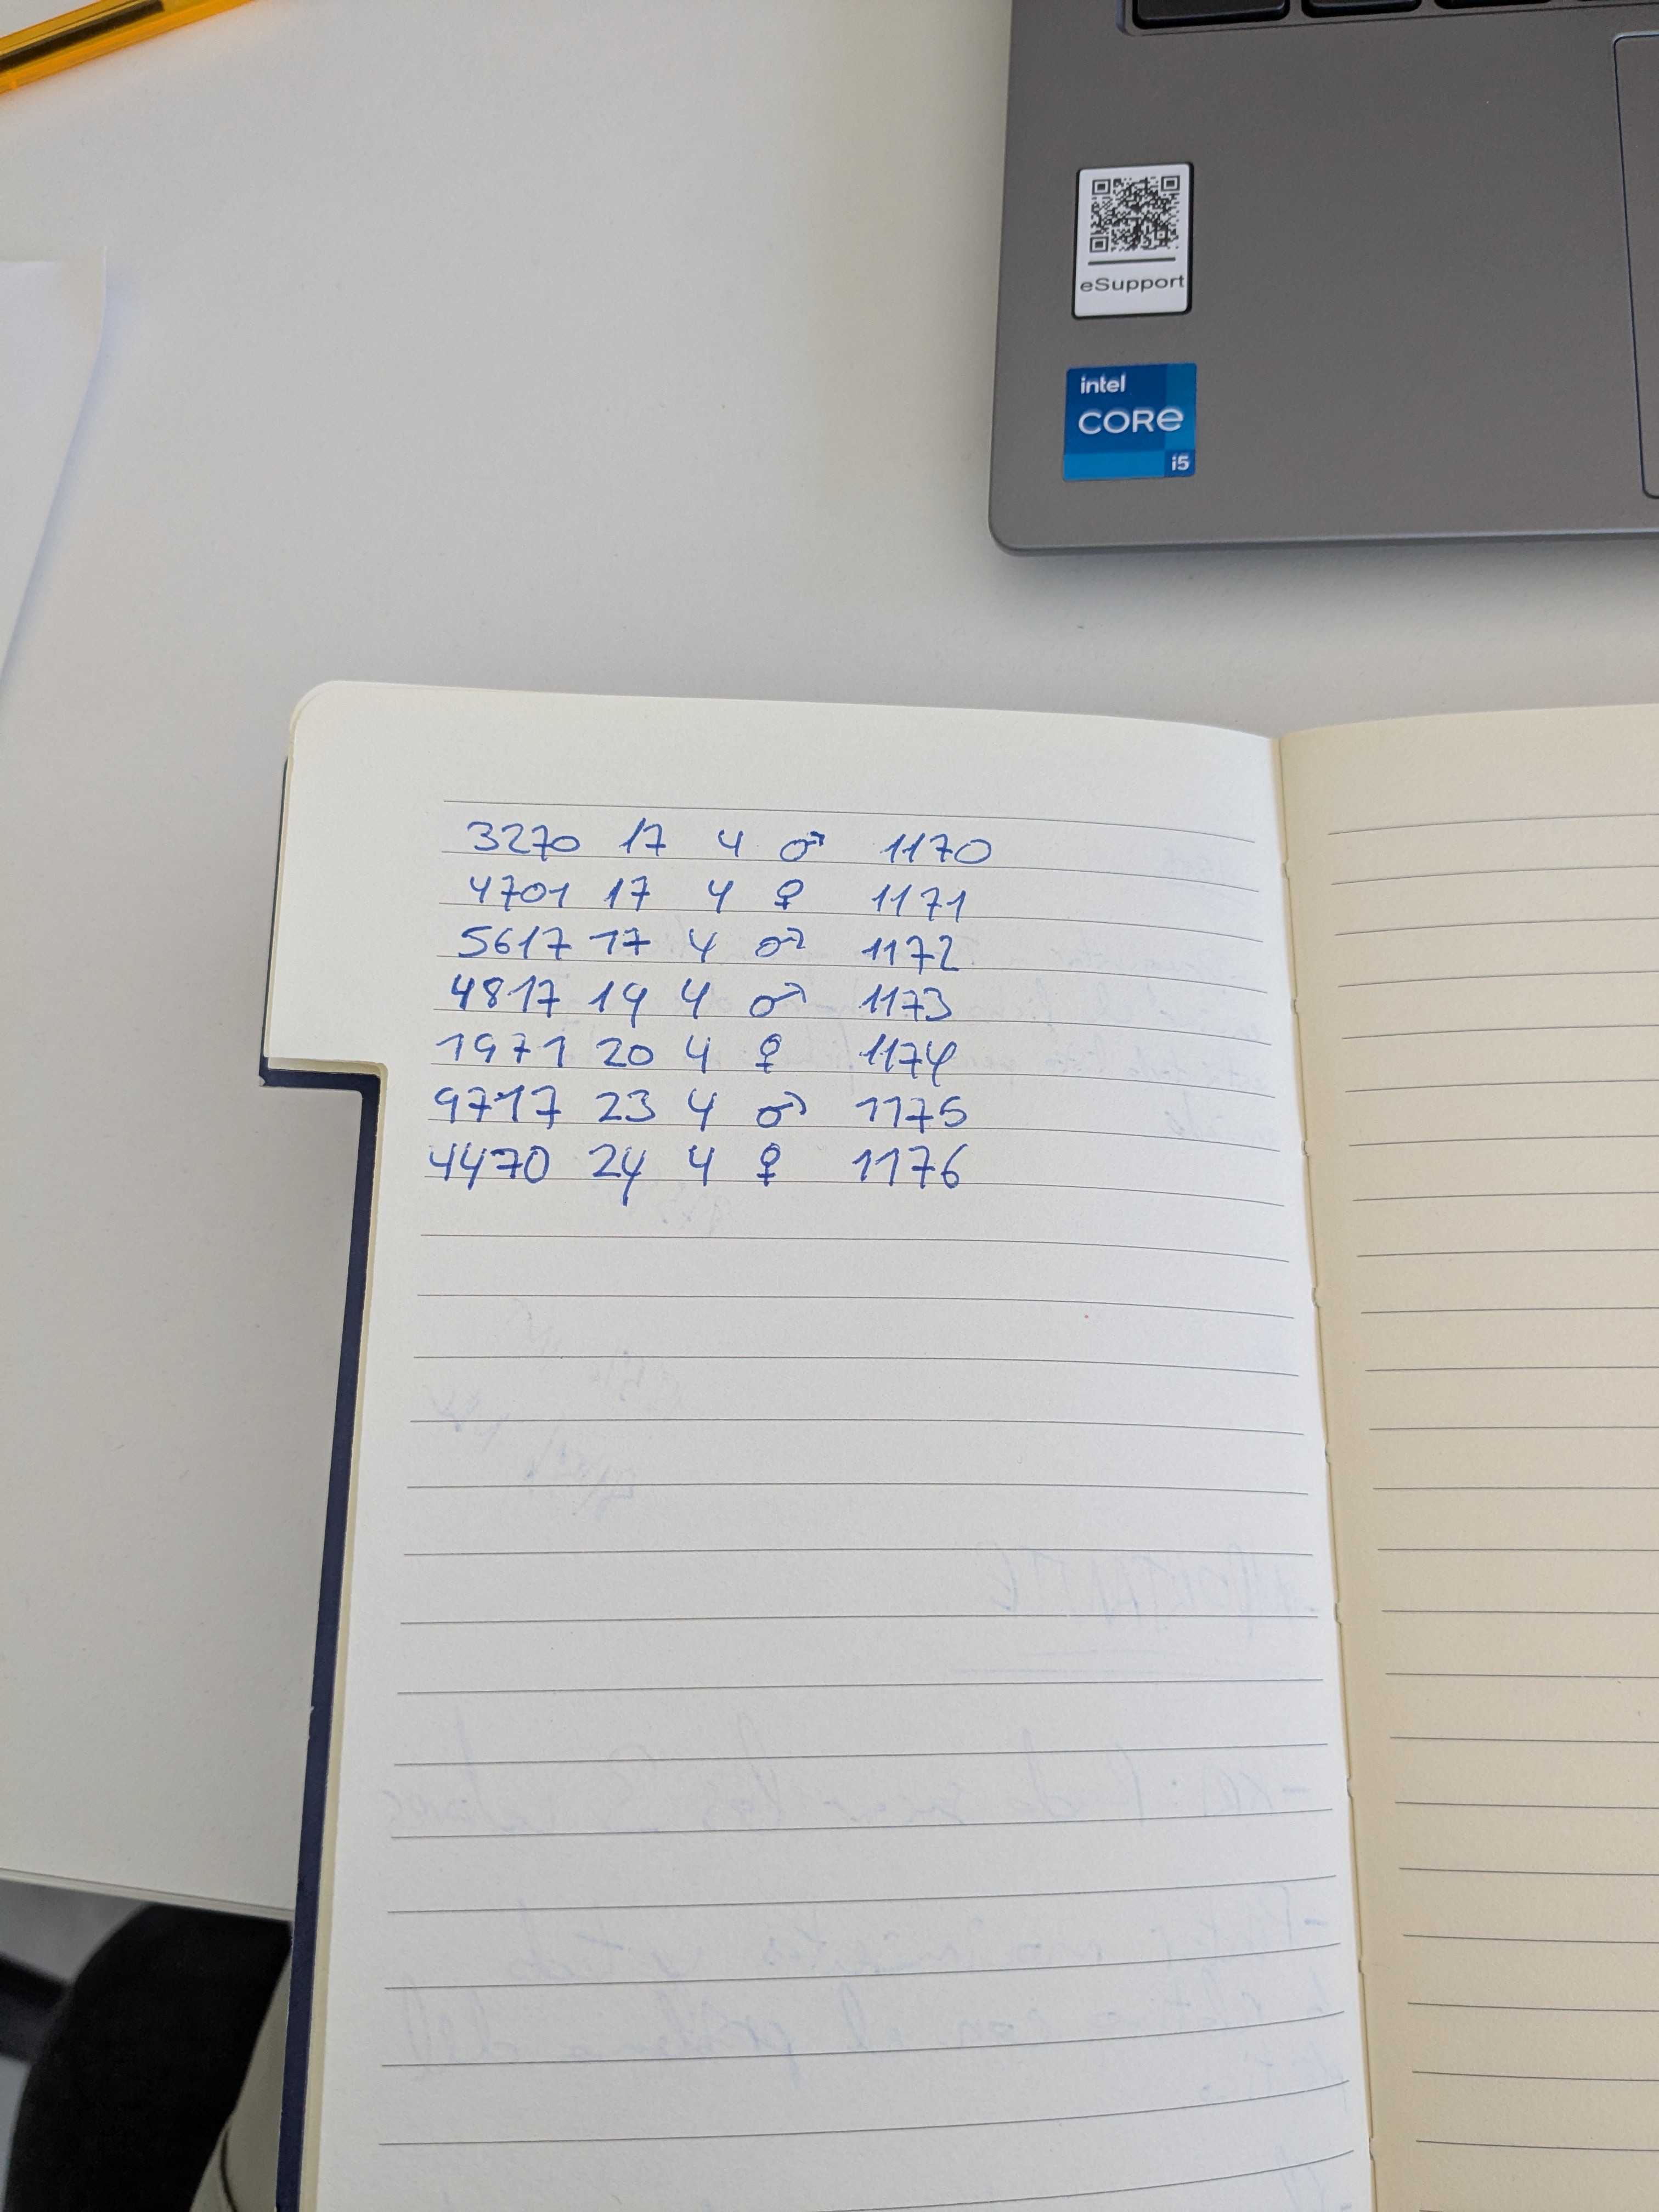 eSupport
intel
CORe
i5
3270 17 4 ♂ 1170
4701 17 4 ♀ 1171
5617 17 4 ♂ 1172
4817 19 4 ♂ 1173
1971 20 4 ♀ 1174
9717 23 4 ♂ 1175
4470 24 4 ♀ 1176